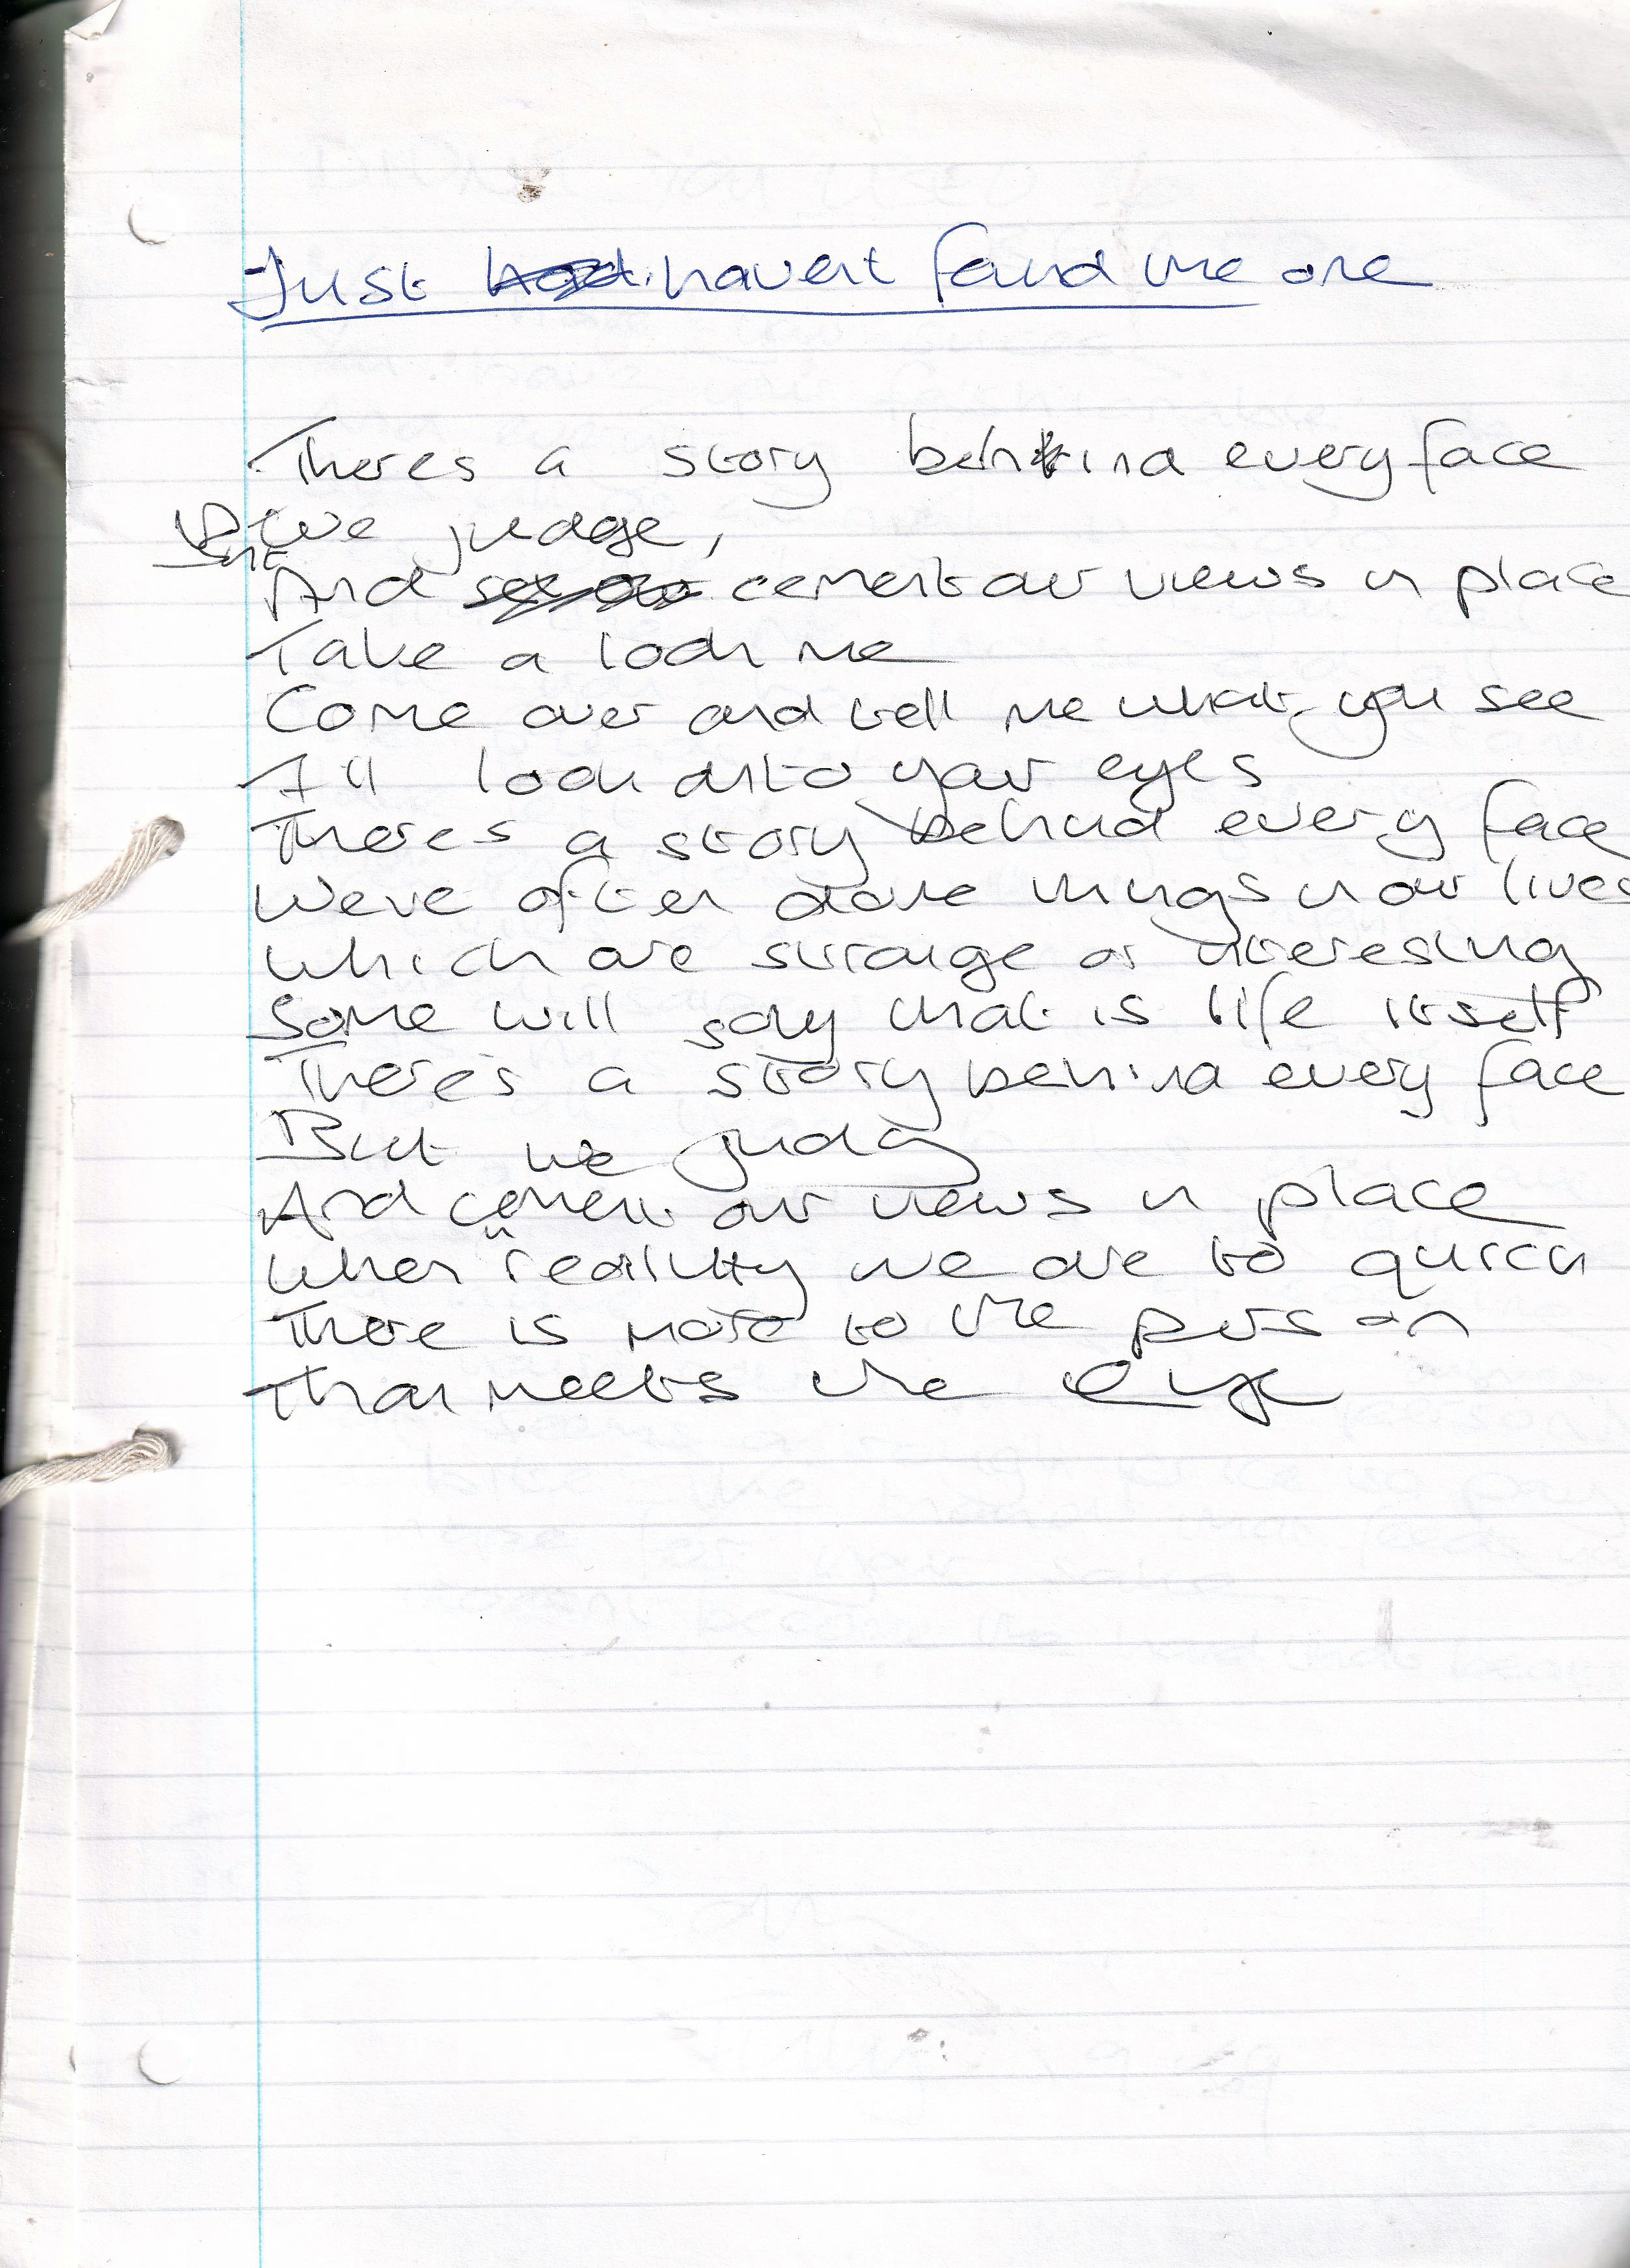 Just havent found the one
Theres a story behind every face
But we judge,
And cement our views in place
Take a look me
Come over and tell me what you see
I'll look into your eyes
Theres a story behind every face
Weve often done things in our lives
which are strange or interesing
Some will say that is life itself
There's a story behind every face
But we judg
And cement our views in place
when in reality we are to quick
There is more to the person
Than meets the eye